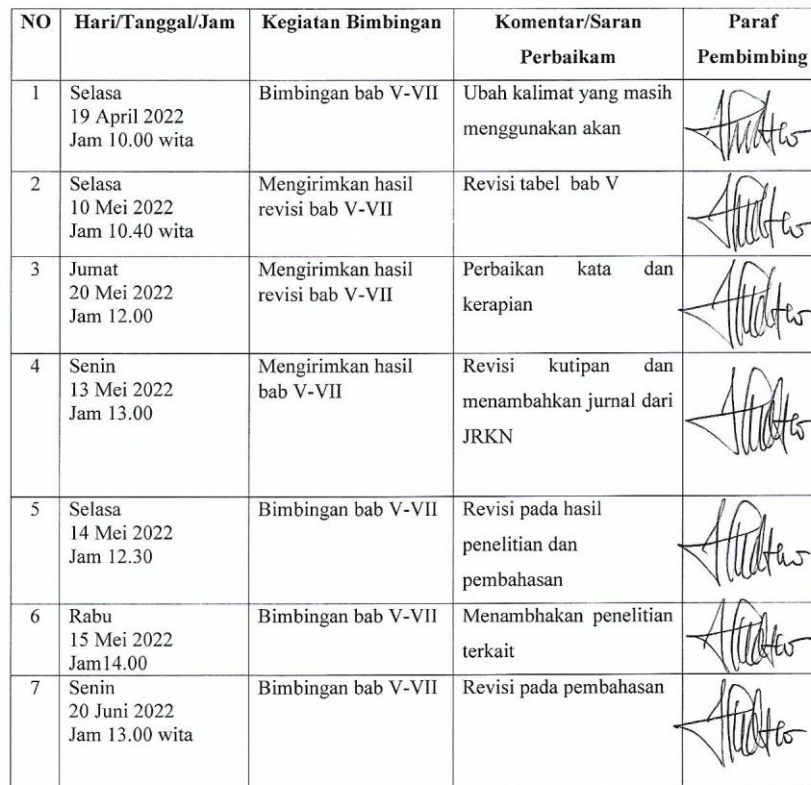 NO Hari/Tanggal/Jam Kegiatan Bimbingan Komentar/Saran Perbaikam Paraf Pembimbing
1 Selasa
19 April 2022
Jam 10.00 wita
Bimbingan bab V-VII
Ubah kalimat yang masih
menggunakan akan
2 Selasa
10 Mei 2022
Jam 10.40 wita
Mengirimkan hasil
revisi bab V-VII
Revisi tabel bab V
3 Jumat
20 Mei 2022
Jam 12.00
Mengirimkan hasil
revisi bab V-VII
Perbaikan kata dan
kerapian
4 Senin
13 Mei 2022
Jam 13.00
Mengirimkan hasil
bab V-VII
Revisi kutipan dan
menambahkan jurnal dari
JRKN
5 Selasa
14 Mei 2022
Jam 12.30
Bimbingan bab V-VII
Revisi pada hasil
penelitian dan
pembahasan
6 Rabu
15 Mei 2022
Jam14.00
Bimbingan bab V-VII
Menambhakan penelitian
terkait
7 Senin
20 Juni 2022
Jam 13.00 wita
Bimbingan bab V-VII
Revisi pada pembahasan